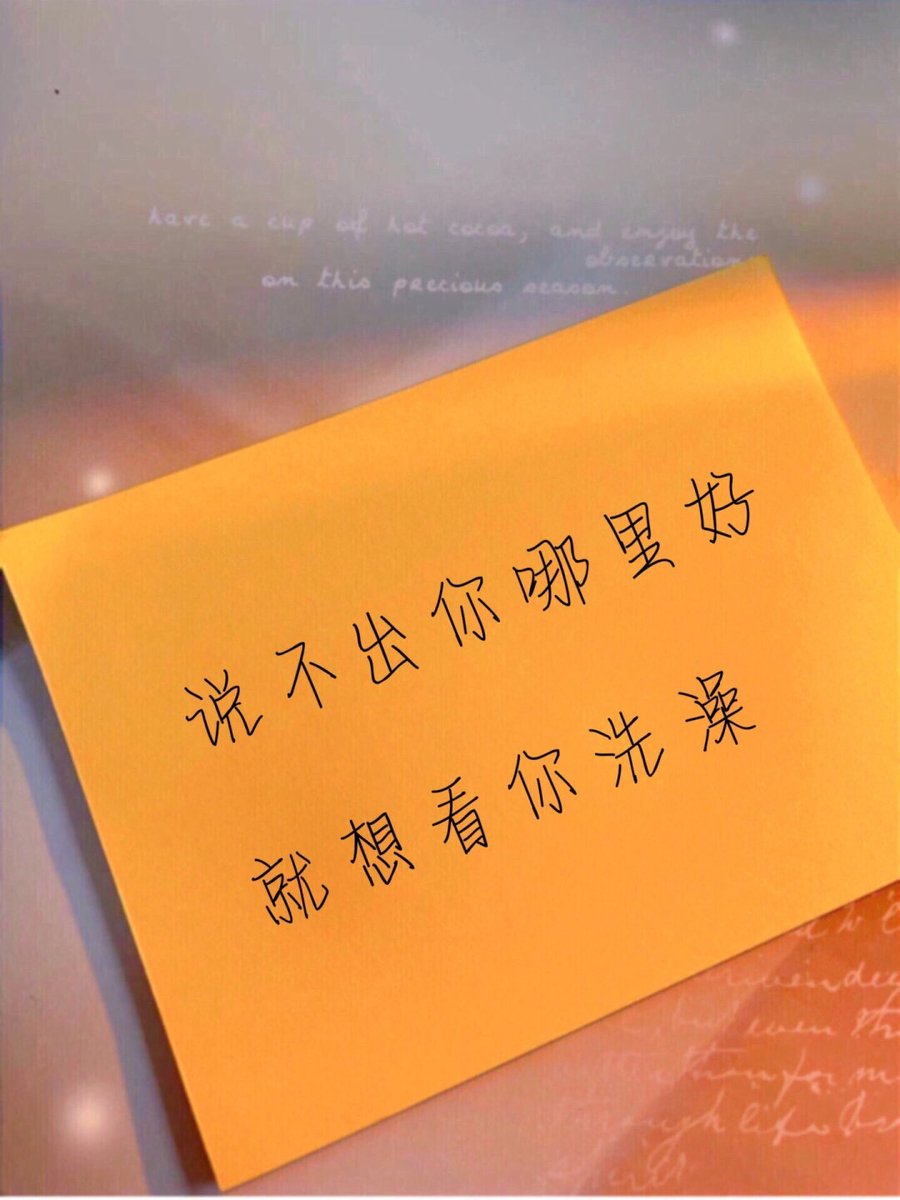 have a cup of hot cocoa, and enjoy the
observations
on this precious season.
说不出你哪里好
就想看你洗澡
even th
for m
through life